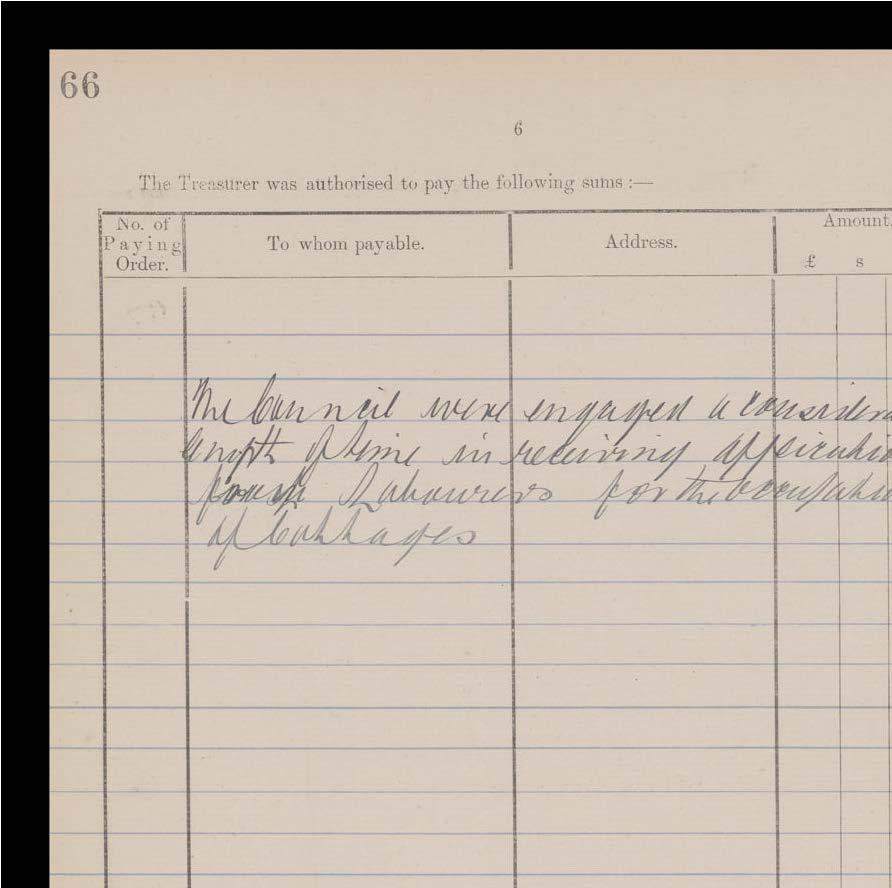 66
6
The Treasurer was authorised to pay the following sums :—
No. of Paying Order.
To whom payable.
Address.
Amount.
£ s
The Council were engaged a considera
length of time in receiving applicatio
from Labourers for the occupatio
of Cottages